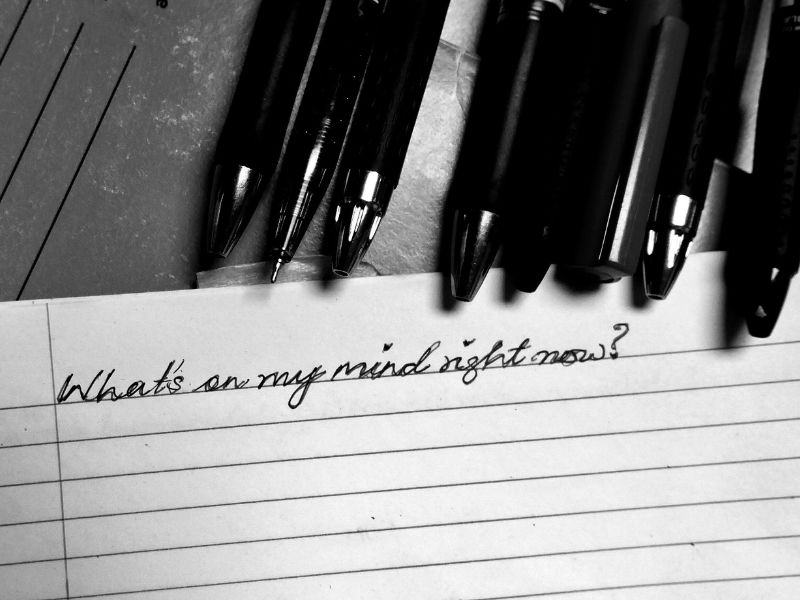 What's on my mind right now?